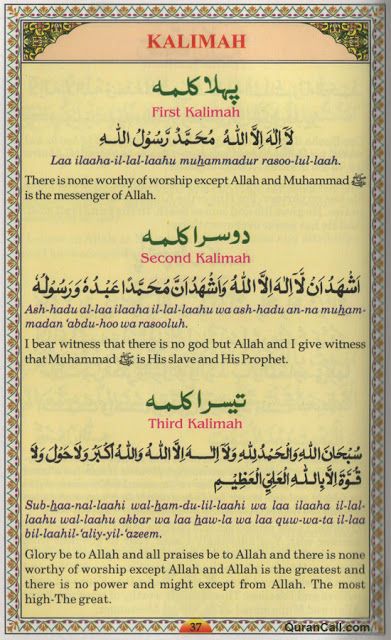 KALIMAH
پہلا کلمہ
First Kalimah
لَآ اِلٰهَ اِلَّا اللّٰهُ مُحَمَّدٌ رَّسُوْلُ اللّٰهِ
Laa ilaaha-il-lal-laahu muhammadur rasoo-lul-laah.
There is none worthy of worship except Allah and Muhammad ﷺ
is the messenger of Allah.
دوسرا کلمہ
Second Kalimah
اَشْهَدُ اَنْ لَّآ اِلٰهَ اِلَّا اللّٰهُ وَاَشْهَدُ اَنَّ مُحَمَّدًا عَبْدُهٗ وَرَسُوْلُهٗ
Ash-hadu al-laa ilaaha il-lal-laahu wa ash-hadu an-na muham-
madan ‘abdu-hoo wa rasooluh.
I bear witness that there is no god but Allah and I give witness
that Muhammad ﷺ is His slave and His Prophet.
تیسرا کلمہ
Third Kalimah
سُبْحَانَ اللّٰهِ وَالْحَمْدُ لِلّٰهِ وَلَآ اِلٰهَ اِلَّا اللّٰهُ وَاللّٰهُ اَكْبَرُ وَلَا حَوْلَ وَلَا
قُوَّةَ اِلَّا بِاللّٰهِ الْعَلِيِّ الْعَظِيْمِ
Sub-haa-nal-laahi wal-ham-du-lil-laahi wa laa ilaaha il-lal-
laahu wal-laahu akbar wa laa haw-la wa laa quw-wa-ta il-laa
bil-laahil-‘aliy-yil-‘azeem.
Glory be to Allah and all praises be to Allah and there is none
worthy of worship except Allah and Allah is the greatest and
there is no power and might except from Allah. The most
high-The great.
37
QuranCall.com